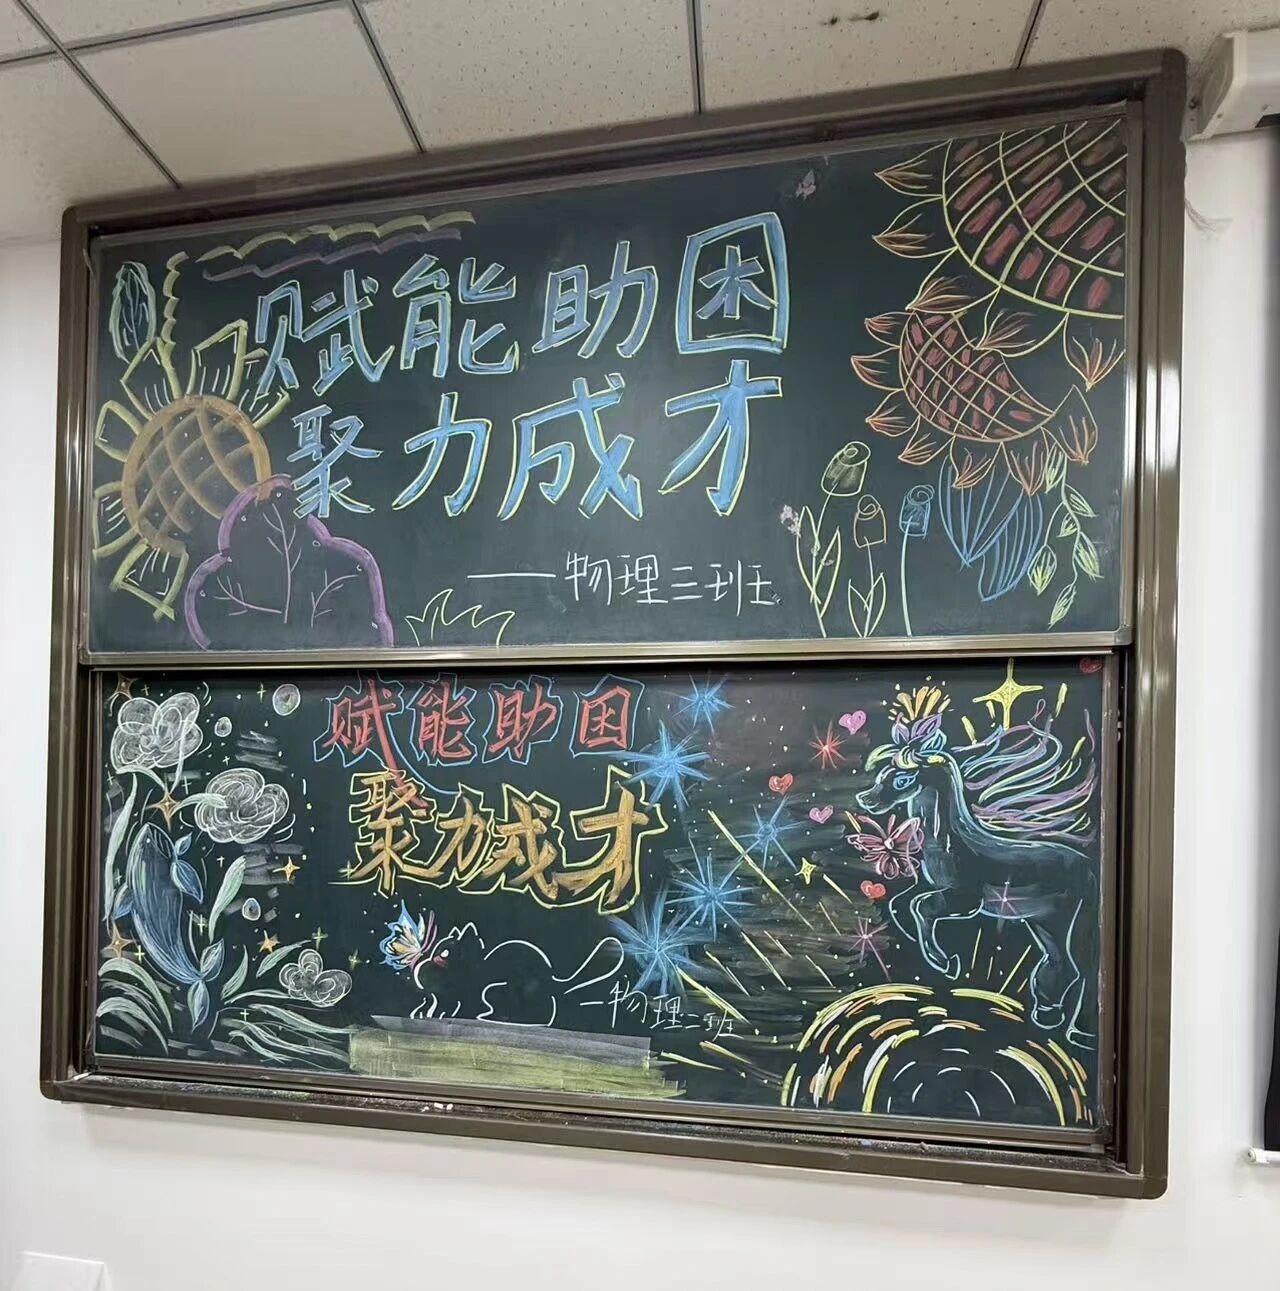 赋能助困
聚力成才
——物理三班
赋能助困
聚力成才
—物理二班